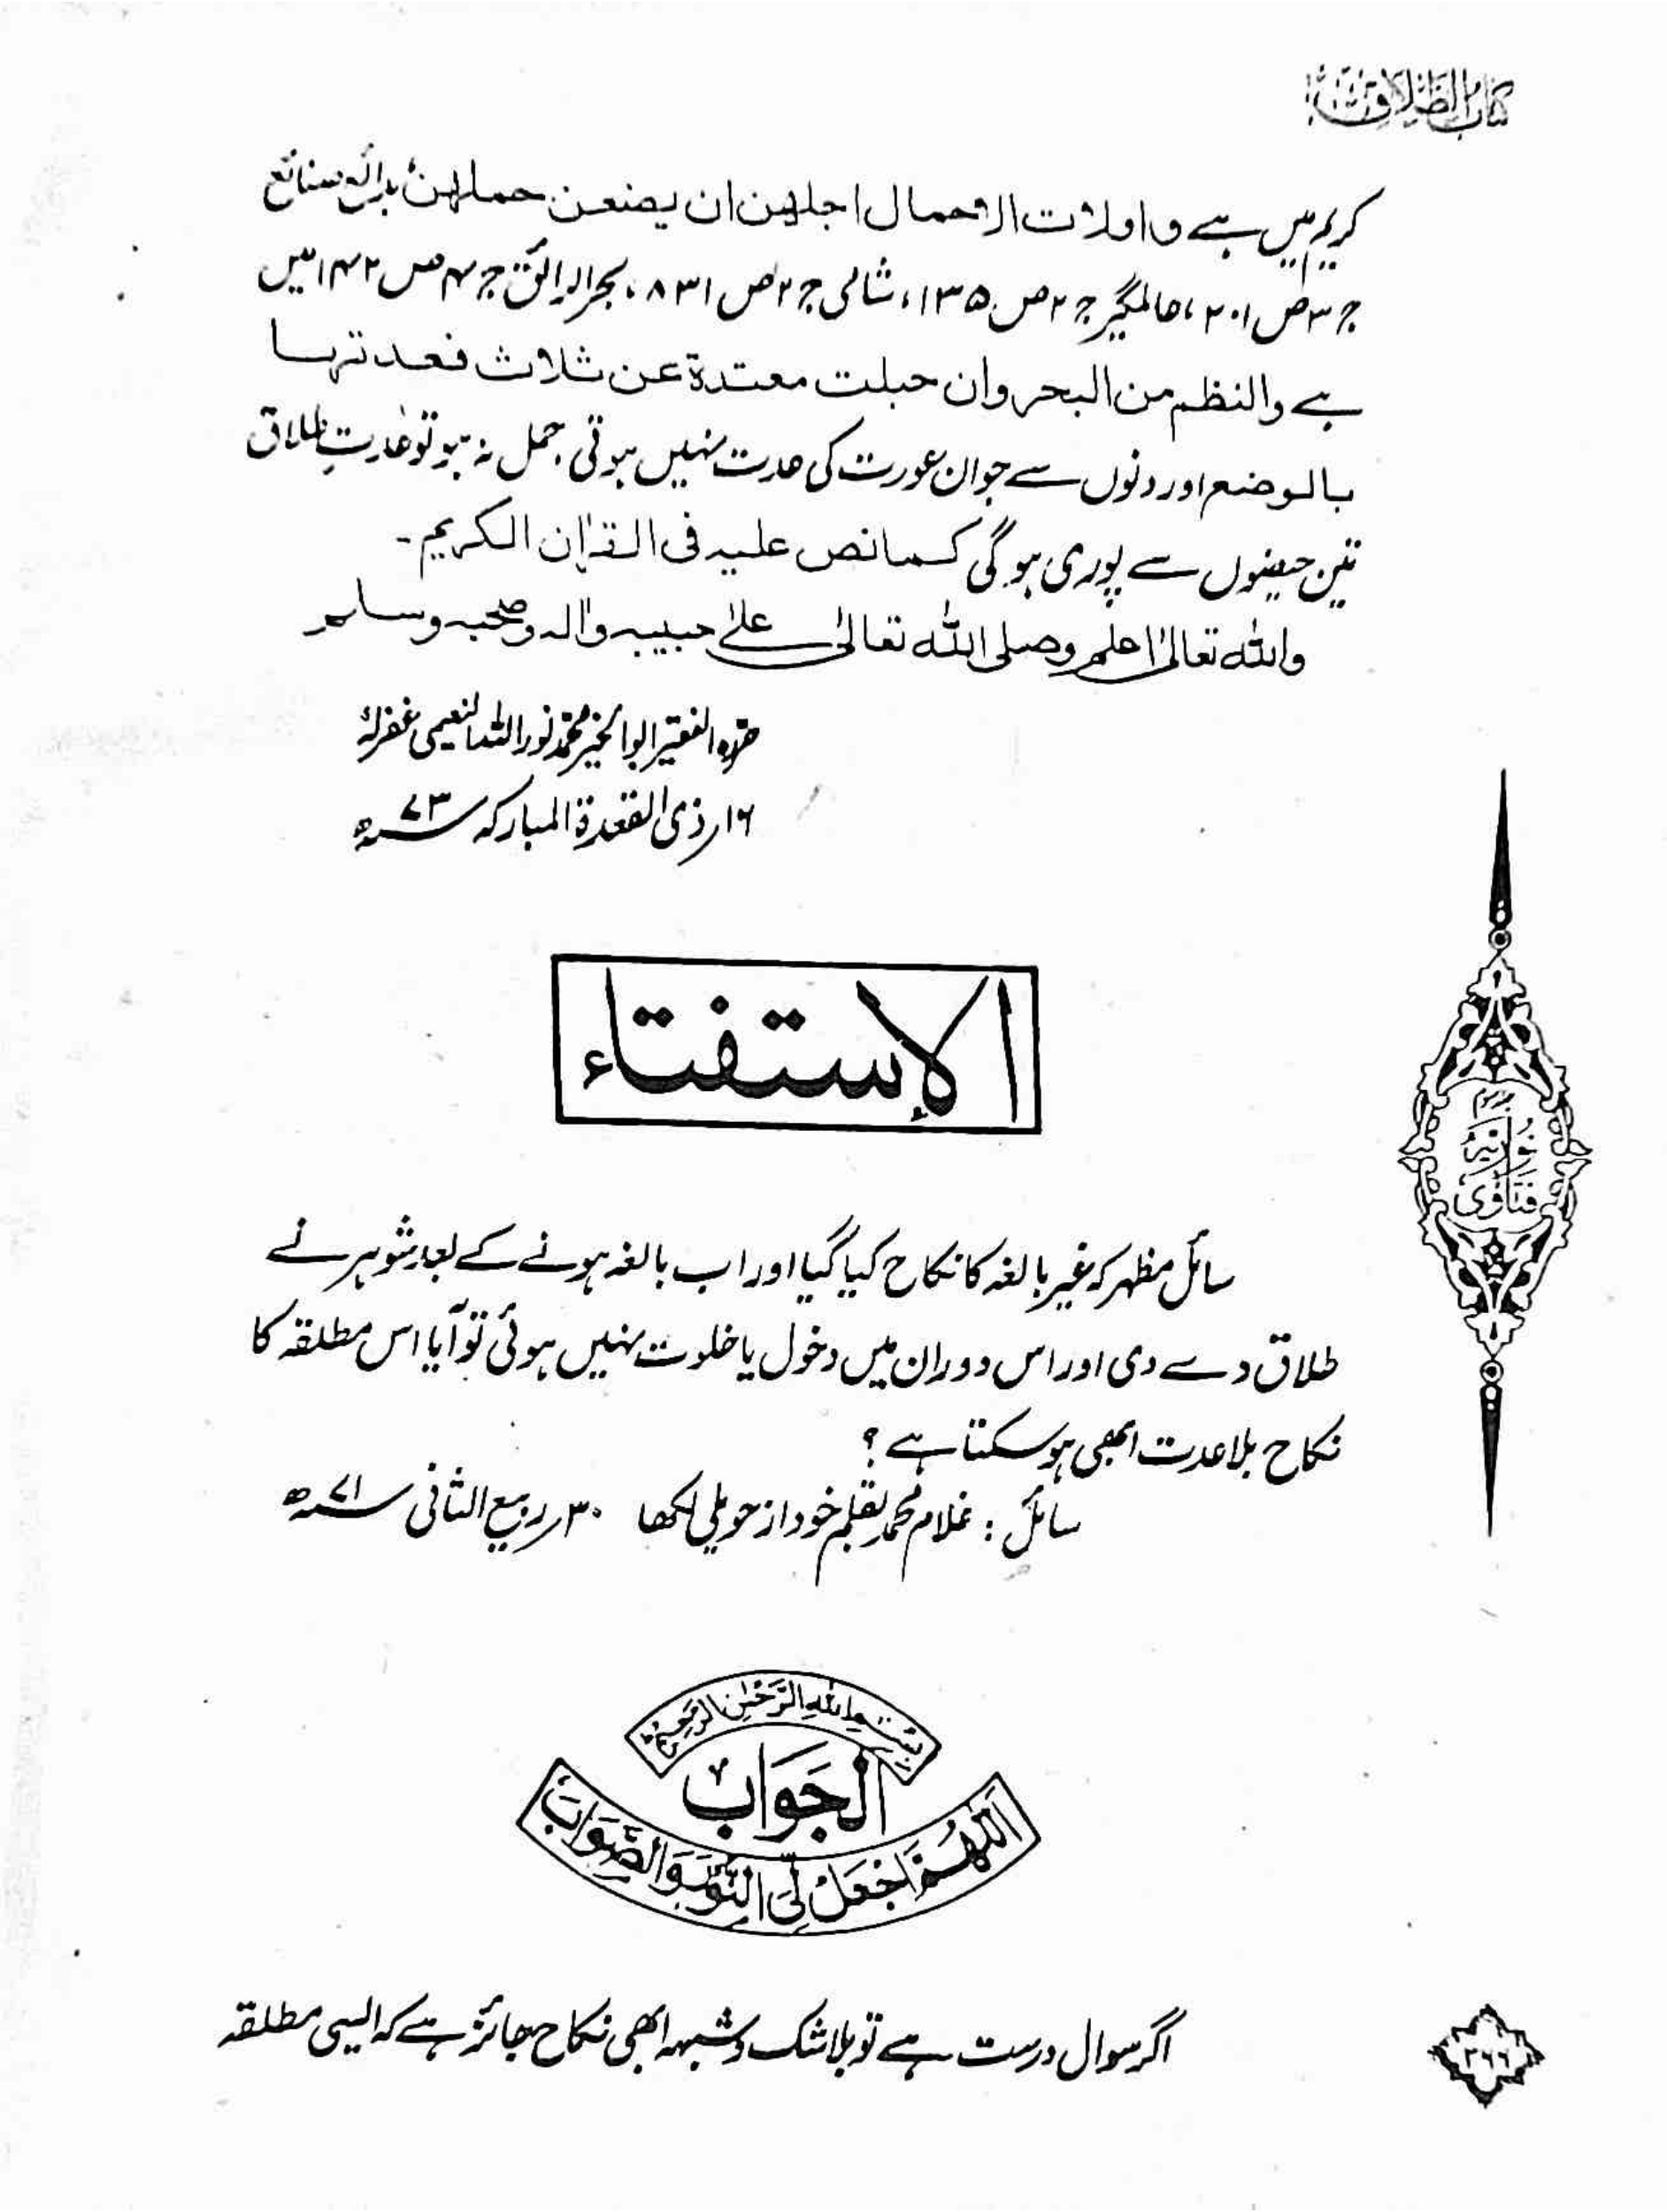 کتاب الطلاق
کریم میں ہے و اولات الاحمال اجلهن ان یضعن حملهن بدائع صنائع
ج ۳ ص ۲۰۱، عالمگیر ج ۲ ص ۱۳۵، شامی ج ۲ ص ۸۳۱، بحر الرائق ج ۴ ص ۱۴۲ میں
ہے والنظم من البحر وان حبلت معتدة عن ثلاث فعدتها
بالوضع اور دنوں سے جوان عورت کی عدت نہیں ہوتی، حمل نہ ہو تو عدتِ طلاق
تین حیضوں سے پوری ہو گی کما نص علیہ فی القراٰن الکریم۔
واللہ تعالیٰ اعلم وصلی اللہ تعالیٰ علیٰ حبیبہ واٰلہ وصحبہ وسلم
حررہ الفقیر ابو الخیر محمد نور اللہ النعیمی غفرلہٗ
۱۶ر ذی القعدة المبارکہ ۷۳سنہ ھ
الإستفتاء
فتاویٰ نوریہ
سائل مظہر کہ غیر بالغہ کا نکاح کیا گیا اور اب بالغہ ہونے کے بعد شوہر نے
طلاق دے دی اور اس دوران میں دخول یا خلوت نہیں ہوئی تو آیا اس مطلقہ کا
نکاح بلا عدت ابھی ہو سکتا ہے ؟
سائل : غلام محمد بقلم خود از حویلی لکھا ۳۰ر ربیع الثانی ۷۱سنہ ھ
بسم اللہ الرحمٰن الرحیم
الجَوَابُ
اَللّٰھُمَّ اجْعَلْ لِّیَ النُّوْرَ وَالصَّوَابَ
اگر سوال درست ہے تو بلا شک و شبہہ ابھی نکاح جائز ہے کہ ایسی مطلقہ
۳۶۶